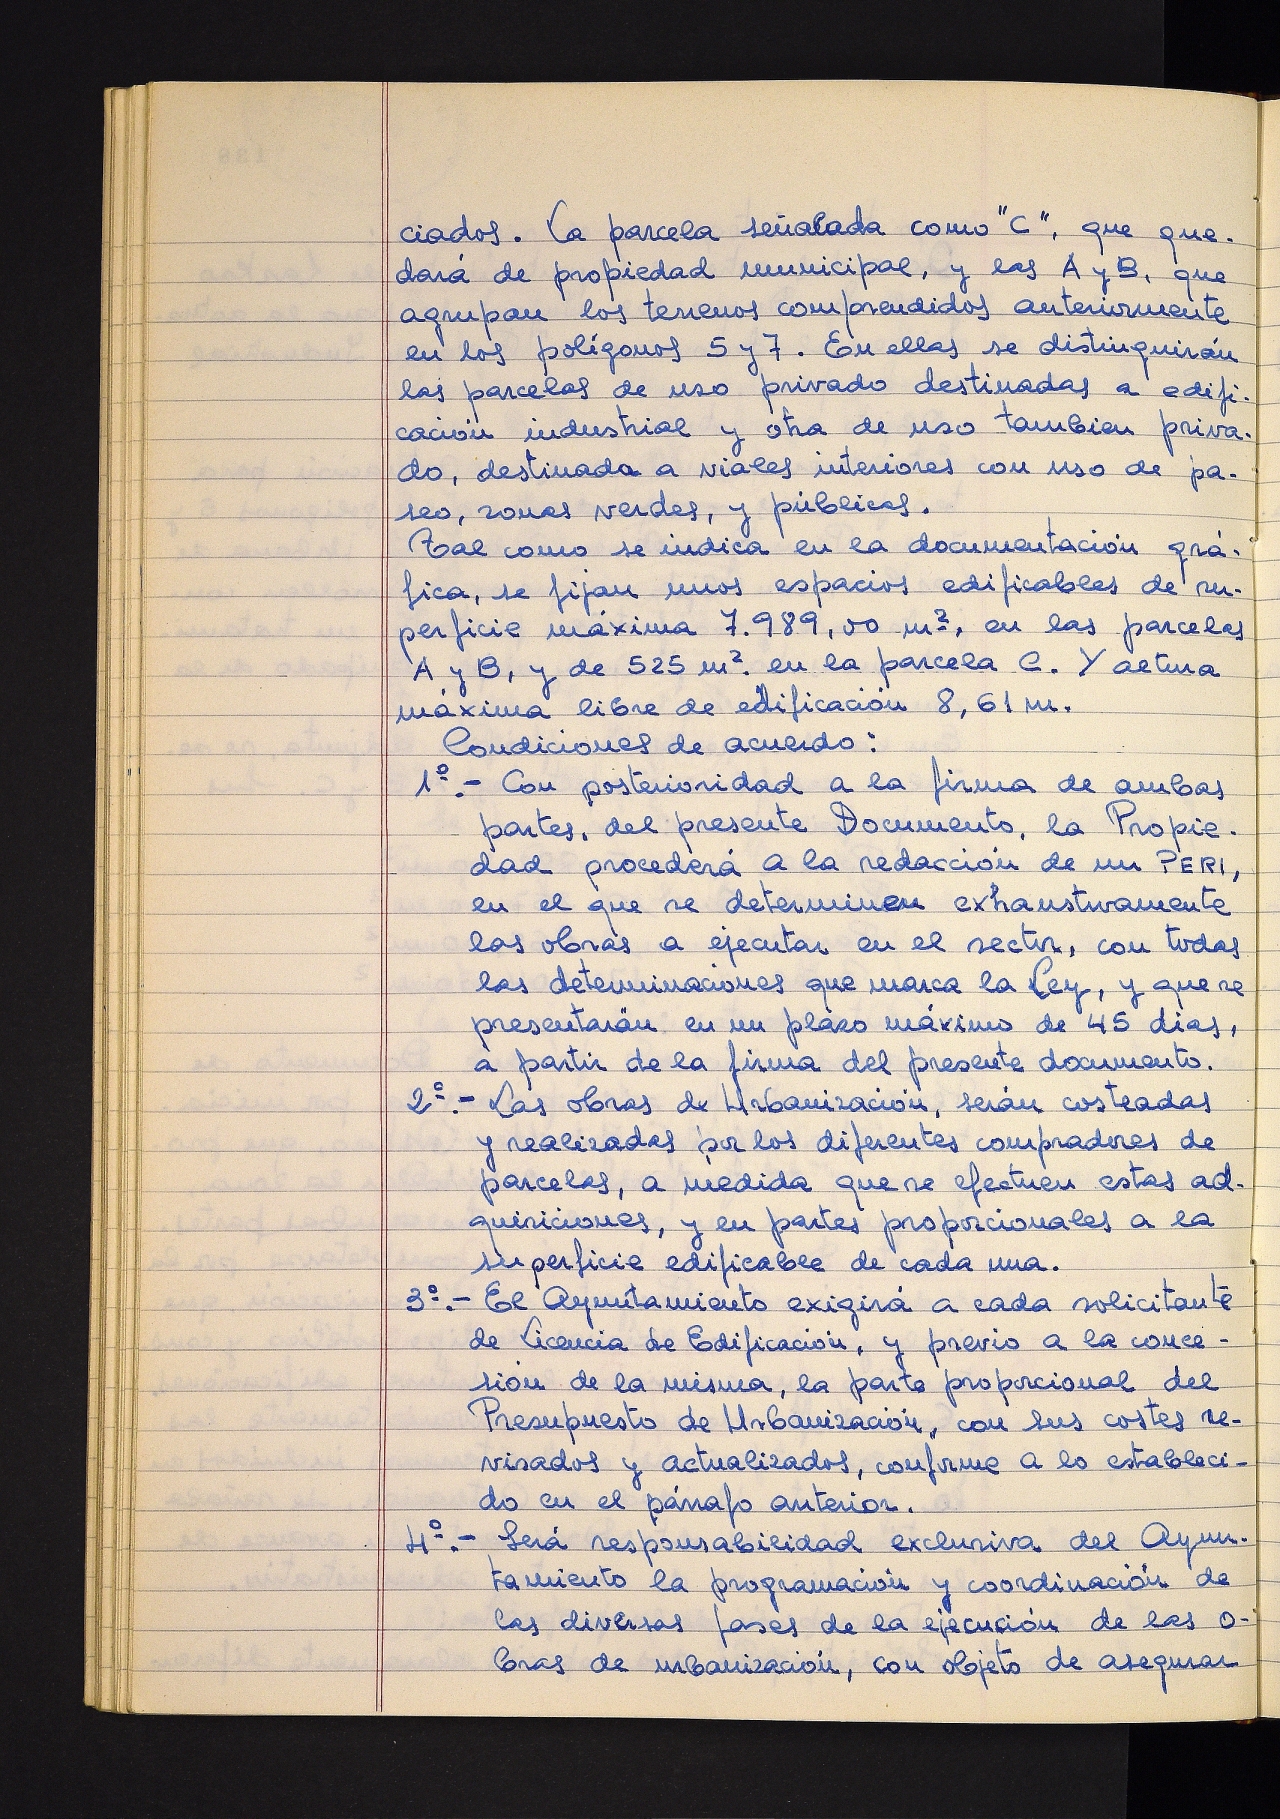 ciados. La parcela señalada como "C", que que-
dará de propiedad municipal, y las A y B, que
agrupan los terrenos comprendidos anteriormente
en los polígonos 5 y 7. En ellas se distinguirán
las parcelas de uso privado destinadas a edifi-
cación industrial y otra de uso tambien priva-
do, destinada a viales interiores con uso de pa-
seo, zonas verdes, y públicas.
Tal como se indica en la documentación grá-
fica, se fijan unos espacios edificables de su-
perficie máxima 7.989,00 m², en las parcelas
A y B, y de 525 m². en la parcela C. Y altura
máxima libre de edificación 8,61 m.
Condiciones de acuerdo:
1º.- Con posterioridad a la firma de ambas
partes, del presente Documento, la Propie-
dad procederá a la redacción de un PERI,
en el que se determinen exhaustivamente
las obras a ejecutar en el sector, con todas
las determinaciones que marca la Ley, y que se
presentarán en un plazo máximo de 45 dias,
a partir de la firma del presente documento.
2º.- Las obras de Urbanización, serán costeadas
y realizadas por los diferentes compradores de
parcelas, a medida que se efectuen estas ad-
quisiciones, y en partes proporcionales a la
superficie edificable de cada una.
3º.- El Ayuntamiento exigirá a cada solicitante
de Licencia de Edificación, y previo a la conce-
sión de la misma, la parte proporcional del
Presupuesto de Urbanización, con sus costes re-
visados y actualizados, conforme a lo estableci-
do en el párrafo anterior.
4º.- Será responsabilidad exclusiva del Ayun-
tamiento la programación y coordinación de
las diversas fases de la ejecución de las o-
bras de urbanización, con objeto de asegurar